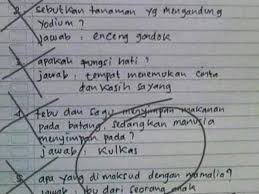 2. sebutkan tanaman yg mengandung
yodium?
jawab: enceng gondok
3. apakah fungsi hati?
jawab: tempat menemukan cinta
dan kasih sayang
4. tebu dan sagu menyimpan makanan
pada batang, sedangkan manusia
menyimpan pada?
jawab: kulkas
5. apa yang dimaksud dengan mamalia?
jawab: ibu dari seorang anak